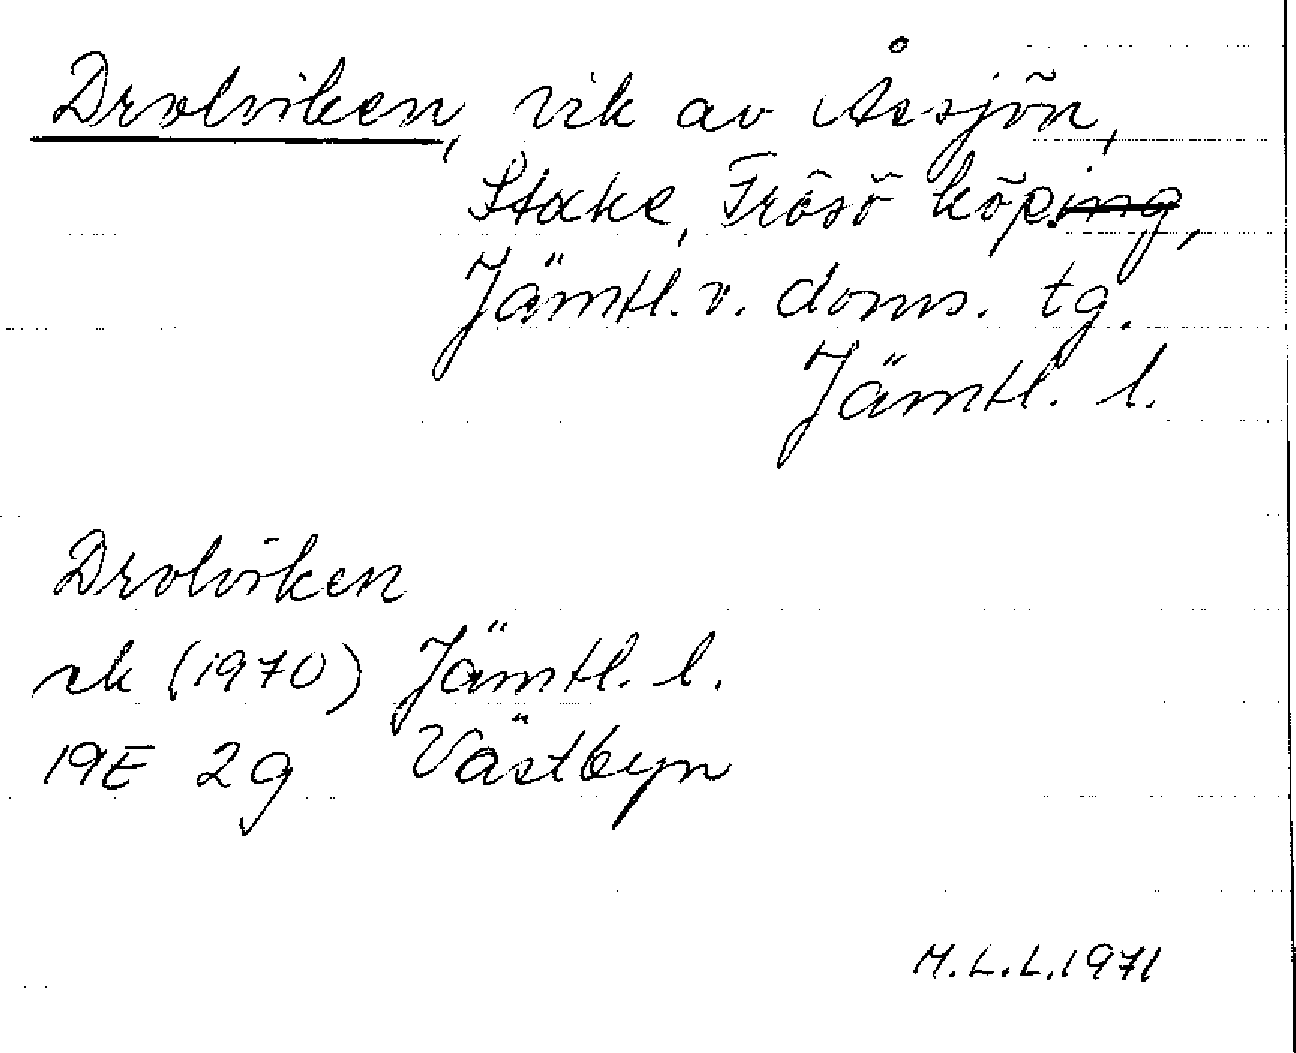 Drolviken, vik av Åssjön,
Stocke, Frösö köping,
Jämtl. v. doms. tg.
Jämtl. l.
Drolviken
rk (1970) Jämtl. l.
19E 2g Västbyn
M.L.L.1971